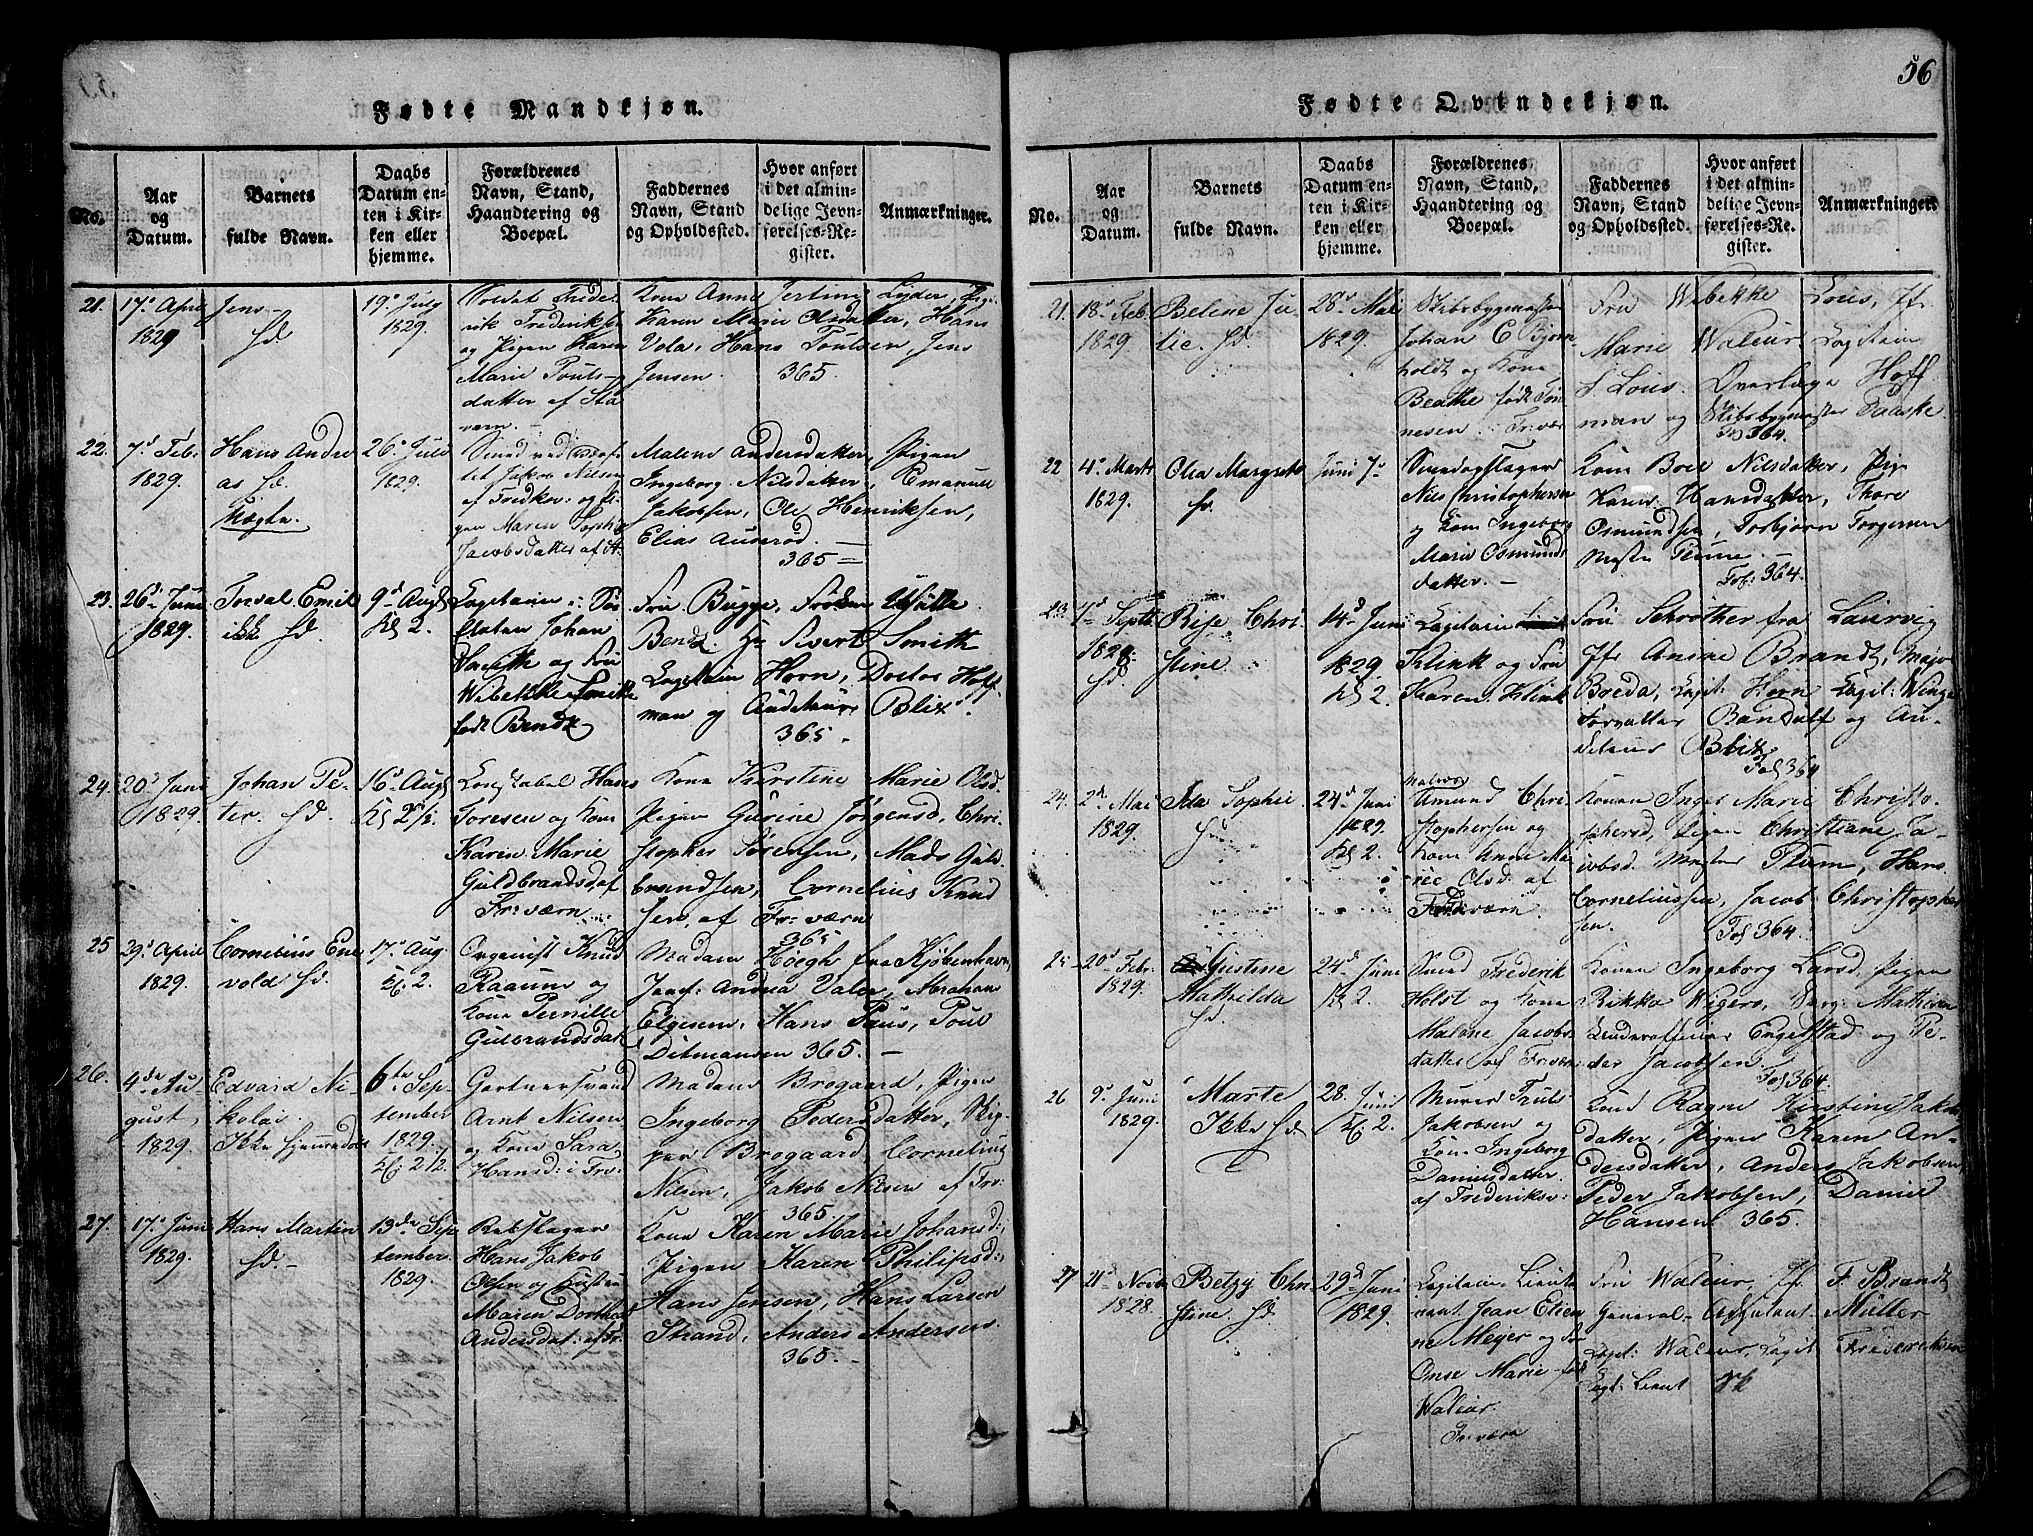 56
Fødte Mandkjøn.
No.
Aar
og
Datum.
Barnets
fulde Navn.
Daabs
Datum en-
ten i Kir-
ken eller
hjemme.
Forældrenes
Navn, Stand,
Haandtering og
Boepæl.
Faddernes
Navn, Stand
og Opholdssted.
Hvor anført
i det almin-
delige Jevn-
førelses-Re-
gister.
Anmærkninger.
21.
17d April
1829
Jens
hd
19d July
1829.
Soldat Frede-
rik Frederiksen
og Pigen Karen
Marie Pouls-
datter af Sta-
vern.
Kone Anne
Karen Marie Olsdatter, Hans
Vola, Hans Poulsen, Jens
Jensen.
365
22.
7d Febr
1829.
Hans Andre
as hd.
Uægte.
26d July
1829.
Jakob Nilsen
af Fredksv: og Pi-
gen Maren Sophie
Jacobsdatter af St.
Malene Andersdatter, Pigen
Ingeborg Nilsdatter, Emanuel
Jakobsen, Ole Henriksen,
Elias Auserød.
365
23.
26d Juni
1829.
Torval Emil
ikk hd.
9d Aug
Kl 2.
Capitain i Søe
Etaten Johan
Smith og Fru
Wibekke Smith
født Bendz
Fru Bugge, Frøken
Bendz. Hr Sivert Smith
Capitain Horn, Doctor Hoff
man og Auditeur Blix.
365.
24.
20d Juni
1829.
Johan Pe-
ter. hd.
16d Aug
Kl 2½.
Hans
Toresen og Kone
Karen Marie
Guldbrandsd af
Fr: værn
Kone Kirstine Marie Olsd.
Pigen Gurine Jørgensd, Chri
stopher Sørensen, Mads Guld
brandsen, Cornelius Knud
sen, af Fr: værn
365
25
29d April
1829.
Cornelius Ene
vold hd.
17d Aug
Kl. 2.
Organist Knud
Raaum og
Kone Pernille
Gulbrandsdat
Madam Høegh fra Kjøbenhavn,
Jomf: Andrea Valer, Abraham
Elgesem, Hans Paus, Poul
Ditmansen 365.
26.
4de Au-
gust,
1829.
Edvard Ni-
kolai.
Ikke hjemmedøbt
6te Sep-
tember
1829.
Kl: 2½.
Gartnersvend
Arnt Nilsen
og Kone Sara
Hansd: i Fr:
Madam Brogaard, Pigen
Ingeborg Pedersdatter, Skip-
per Brogaard, Cornelius
Nilsen, Jakob Nilsen af Fr:
365.
27.
17d Juni
1829.
Hans Martin
hd.
13de Sep
tember
1829.
Rebslager
Hans Jakob
Olsen og Hustru
Maren Dorthea
Andersdat: af Fr:
Kone Karen Marie Johansd:
Pigen Karen Philipsd:
Hans Jensen, Hans Larsen
Strand, Anders Andersen.
365.
Fødte Qvindekjøn.
No.
Aar
og
Datum.
Barnets
fulde Navn.
Daabs
Datum en-
ten i Kir-
ken eller
hjemme.
Forældrenes
Navn, Stand,
Haandtering og
Boepæl.
Faddernes
Navn, Stand
og Opholdssted.
Hvor anført
i det almin-
delige Jevn-
førelses-Re-
gister.
Anmærkninger.
21.
18d Feb.
1829.
Belene Ju
lie. hd.
28d Mai
1829.
Skibsbygmester
Johan C Bjørn
holdt og Kone
Beathe født Tøn
nesen. Fr: vær
Fru Wibekke Lous, Jf
Marie Waleur, Capitain
S Lous. Overlæge Hoff
man og Skibsbygmester Paaske
Fol 364.
22
4d Marts
1829.
Olea Margrete
hd.
Juni 7d
Nils Christophersen
og Kone Ingeborg
Marie Osmunds
datter.
Kone Boel Nilsdatter, Pig
Karen Hansdatter, Thore
Osmundsen, Torbjørn Torgersen
Mester Plum.
Fol: 364.
23
7d Septb
1828.
hd.
Rise Chri
stine
14d Juni
1829.
Kl 2.
Capitain
Klink og Fru
Karen Klink
Fru Schrøther fra Laurvig
Jfr Anine Brandt, Major
Breda, Capit: Horn Capit: Winge
Forvalter Bandulf og Au-
diteur Blix
Fol 364
24.
2d Mai
1829.
Ida Sophie
hd
24d Juni
1829.
Kl 2.
Matros
Amund Chri
stophersen og
Kone Anne Ma
rie Olsd. af
Fredrværn.
Konen Inger Marie Christo-
phersd, Pigen Christiane Ja-
cobsd. Mester Plum, Hans
Corneliussen, Jacob Christopher
sen.
Fol 364.
25
20d Febr.
1829.
Gustine
Mathilda
hd.
24d Juni
Kl 2.
Smed Frederik
Holst og Kone
Malene Jacobs-
datter af Fr:værn
Konen Ingeborg Larsd. Pigen
Rikka Wigers, Serg: Mathisen
Underofficier Engelstad og Pe-
der Jacobsen.
Fol 364.
26
9d Juni
1829.
Marte
Ikke hd.
28. Juni
Kl. 2.
Murer Truls
Jakobsen og
Kone Ingeborg
Danielsdatter
af Frederiksv:
Kone Ragne Kirstine Jakobs
datter, Pigen Karen An-
dersdatter, Anders Jakobsen,
Peder Jakobsen, Daniel
Hansen 365.
27
21d Novbr
1828.
Betzy Chri-
stine. hd.
29d Juni
1829.
Capitain Lieute
nant Jean Etien
ne Meyer og Fru
Onse Marie født
Waleur.
Fr:værn
Fru Waleur, Jf. F. Brandt
General-Adjutant Müller
Capt: Waleur, Capit Frederiksen
Capt: Lieut